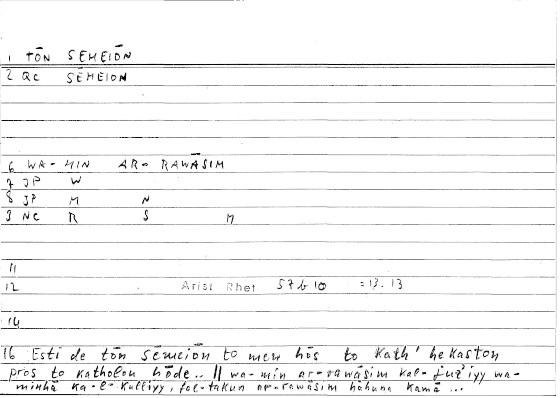 1 TŌN SĒMEIŌN
2 QC SĒMEION
6 WA-MIN AR-RAWĀSIM
7 JP W
8 JP M N
9 NC R S M
11
12 Arist Rhet 57b10 =13.13
14
16 Esti de tōn sēmeiōn to men hōs to kath' hekaston
pros to katholou hōde.. || wa-min ar-rawāsim kal-juz'iyy wa-
minhā ka-l-kulliyy, fal-takun ar-rawāsim hāhunā kamā ...